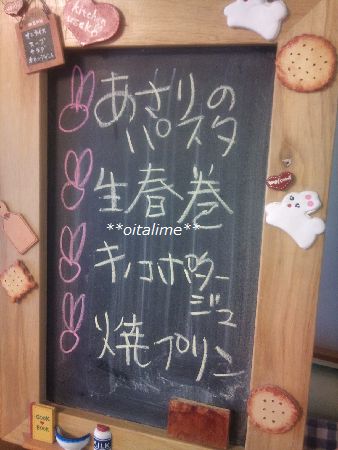 kitchen
あさりの
パスタ
生春巻
**oitalime**
キノコポター
ジュ
焼プリン
COOK
BOOK